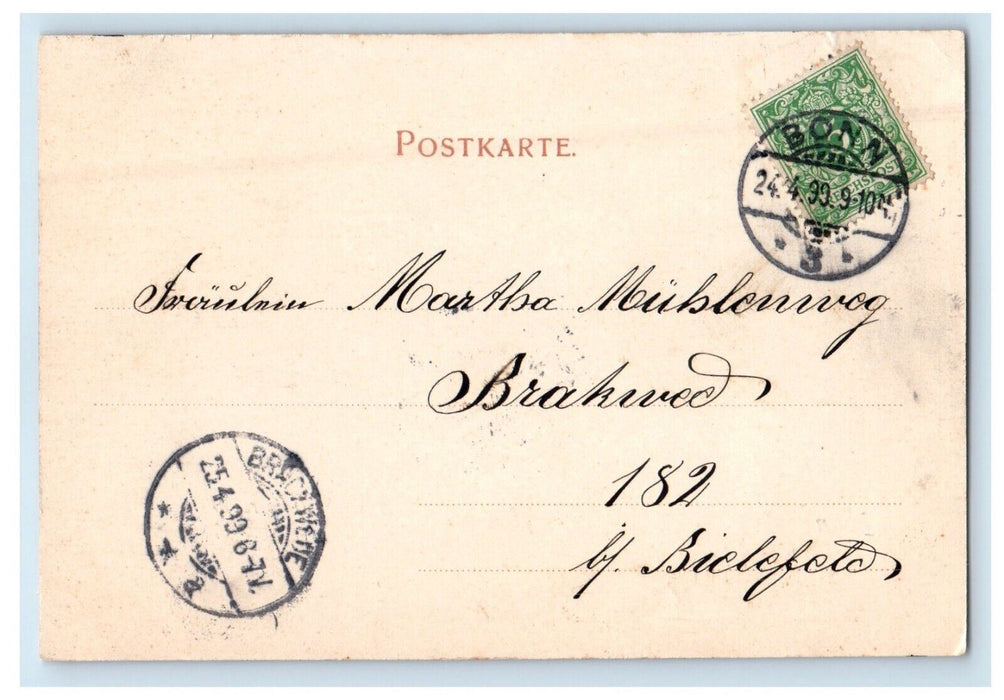 POSTKARTE.
BONN
24.4.99.9-10V.
3
Fräulein Martha Mühlenweg
Brakwed
182
b/. Bielefeld
BRACKWEDE
25.4.99.6-7V.